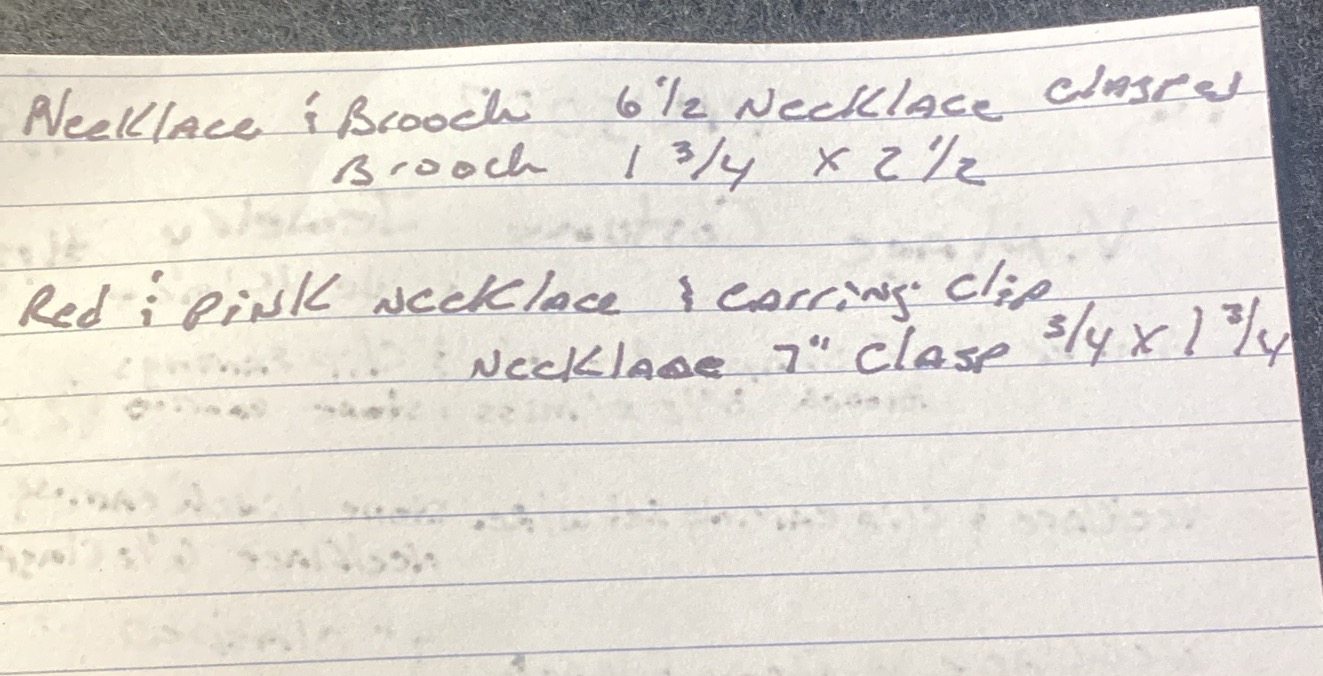 Necklace & Brooch 6 1/2 Necklace Clasped
Brooch 1 3/4 x 2 1/2
Red & Pink Necklace & Earring Clip
Necklace 7" Clasp 3/4 x 1 3/4